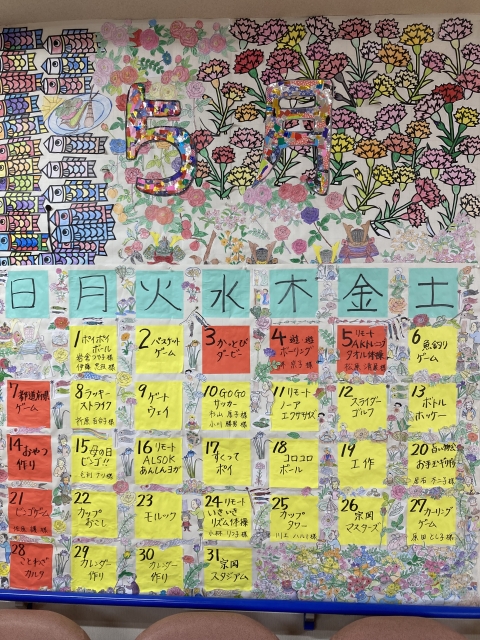 5月
日 月 火 水 木 金 土
1 ホイホイ
ボール
2 バスケット
ゲーム
3 かっとび
ダービー
4 遊・遊
ボーリング
5 リモート
タオル体操
6 魚釣り
ゲーム
7 都道府県
ゲーム
8 ラッキー
ストライク
9 ゲート
ウェイ
10 GOGO
サッカー
11 リモート
エクササイズ
12 スライダー
ゴルフ
13 ボトル
ホッケー
14 おやつ
作り
15 母の日
ビンゴ!!
16 リモート
ALSOK
あんしんヨガ
17 すくって
ポイ
18 コロコロ
ボール
19 工作
20
お手玉
21 ビンゴゲーム
22 カップ
おこし
23 モルック
24 リモート
いきいき
リズム体操
25 カップ
タワー
26 京国
マスターズ
27 カーリング
ゲーム
28 ことわざ
カルタ
29 カレンダー
作り
30 カレンダー
作り
31 京国
スタジアム